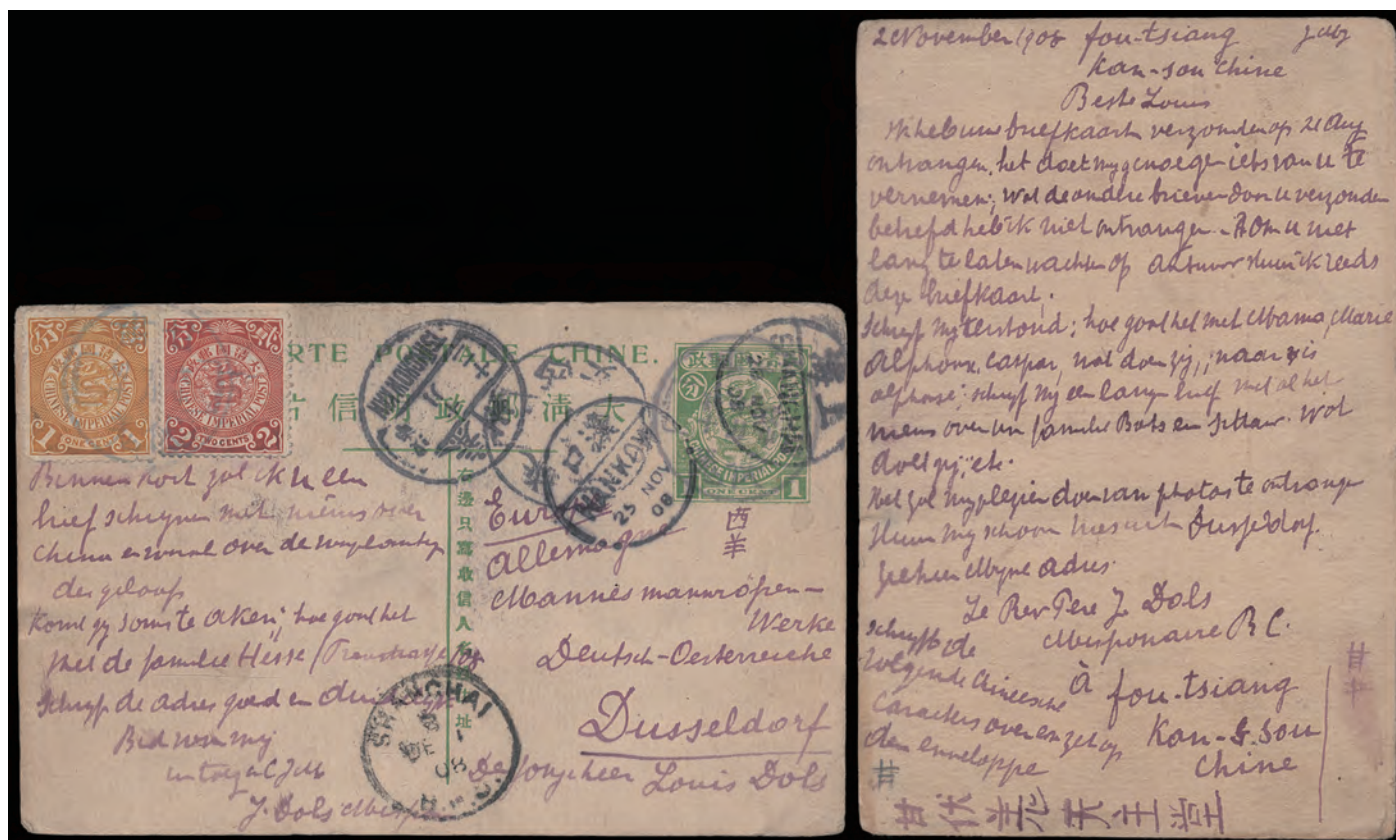 CARTE POSTALE—CHINE.
大清郵政明信片
CHINESE IMPERIAL POST
1 ONE CENT 1
CHINESE IMPERIAL POST
2 TWO CENTS 2
大清國郵政
CHINESE IMPERIAL POST
ONE CENT 1
右邊只寫收信人名 址
HANKOW
漢口
25 NOV
08
SHANGHAI
DE
08
Binnen kort zal ik u een
brief schrijven met nieuws over
China en vooral over de
des geloofs
Komt gij soms te Aken; hoe gaat het
met de familie Hesse
Schrijf de adres goed en duidelijk
Bid voor mij
J. Dols
Europe
西羊
Allemagne
Mannesmannröhren-
Werke
Deutsch-Oesterreiche
Dusseldorf
De Jongeheer Louis Dols
2 November 1908 fou-tsiang
Kan-sou Chine
Beste Louis
Ik heb uwe briefkaart verzonden op 21 Aug
ontvangen, het doet mij genoegen iets van u te
vernemen; Wat de andere brieven door u verzonden
betreft heb ik niet ontvangen. Om u niet
lang te laten wachten op antwoord stuur ik reeds
deze briefkaart.
Schrijf mij terstond; hoe gaat het met Mama, Marie
Alphons, Caspar, wat doen zij, waar is
Alphonse; schrijf mij een lange brief met al het
nieuws over uw familie Bots en Sittard. Wat
doet gij, etc.
Het zal mij plezier doen van photos te ontvangen
Stuur mij schoon uit Dusseldorf.
Mijne adres
Le Rev Père J. Dols
Missionaire B.C.
À fou-tsiang
Kan-sou
Chine
Schrijft de
volgende Chineesche
caracters over en zet op
den enveloppe
甘伏羌天主堂